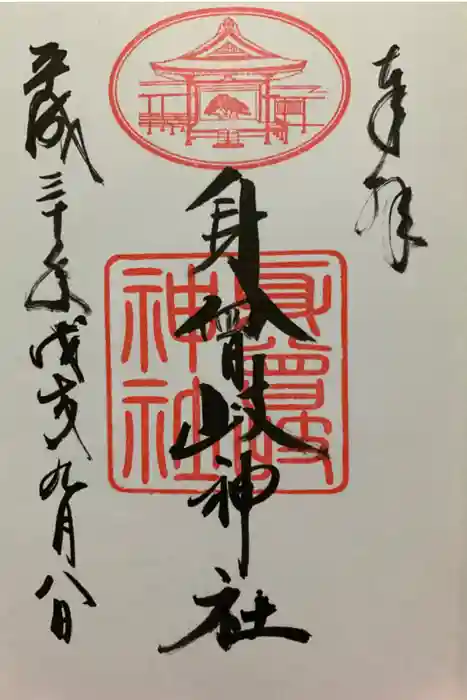 奉拝
身曾岐神社
身曾岐
神社
平成三十年九月八日